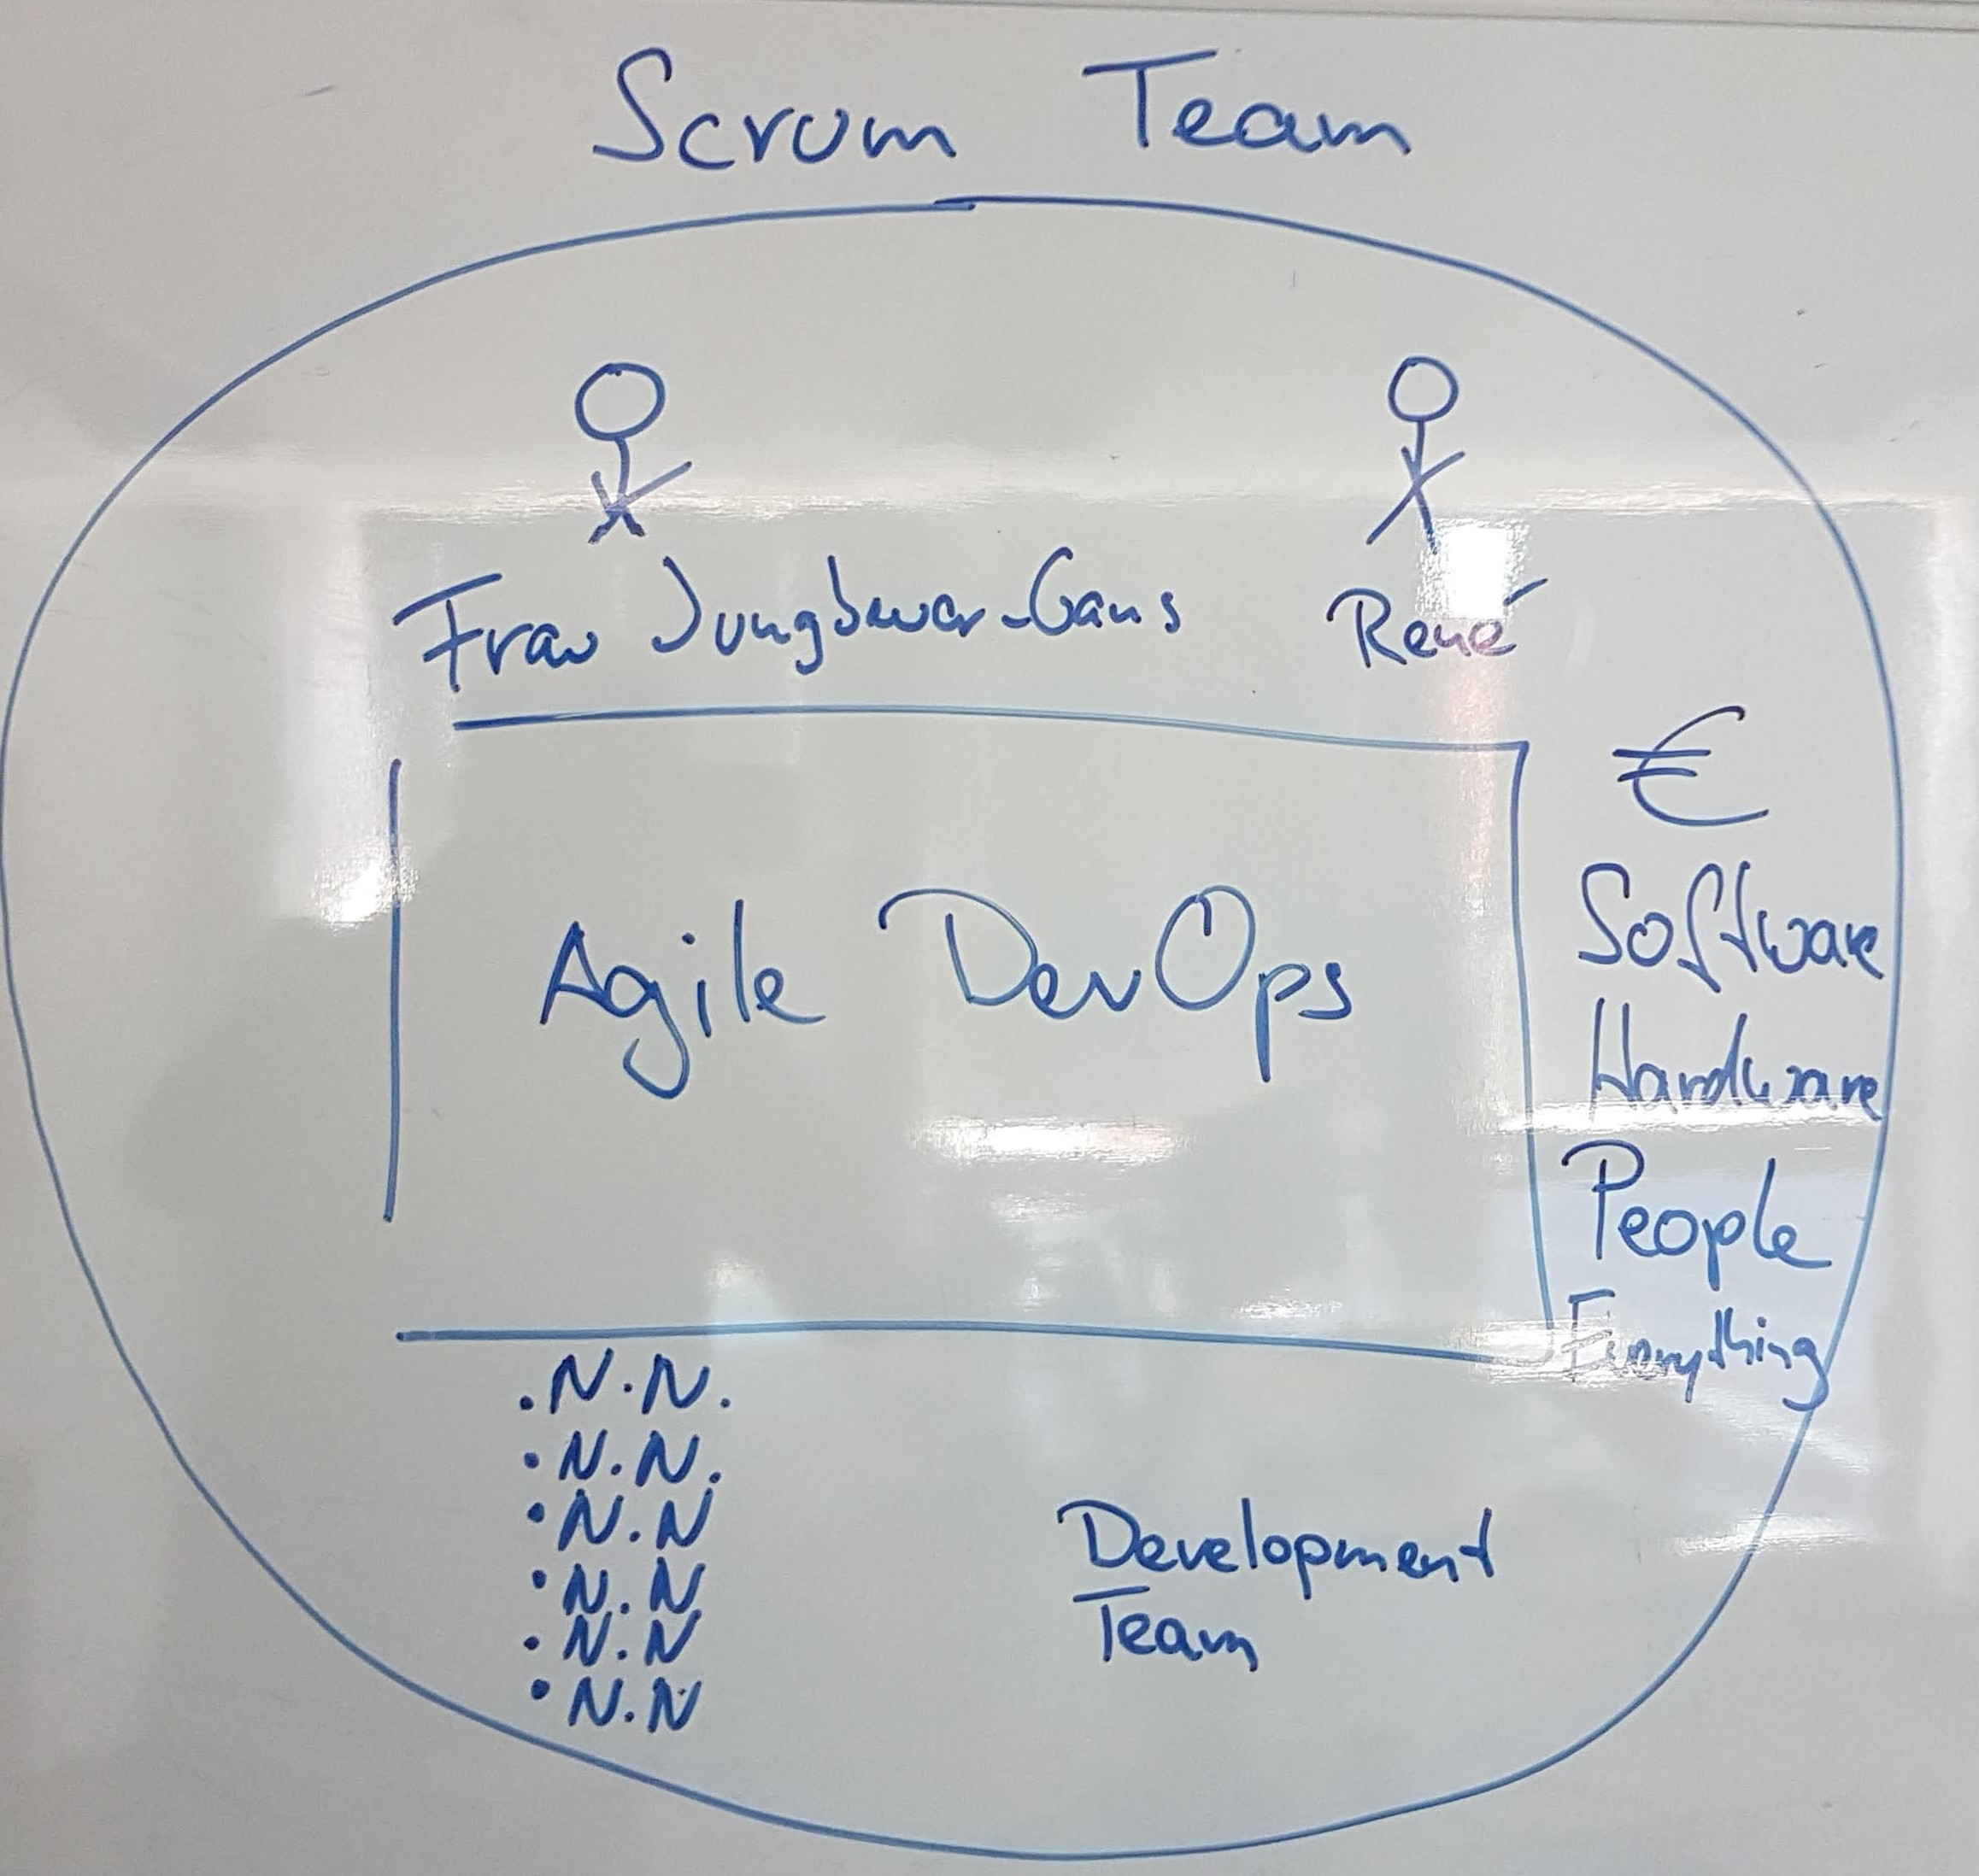 Scrum Team
Frau Jungbauer-Gans René
€
Software
Agile DevOps
Hardware
People
Everything
. N. N.
. N. N.
. N. N
. N. N
. N. N
. N. N
Development
Team